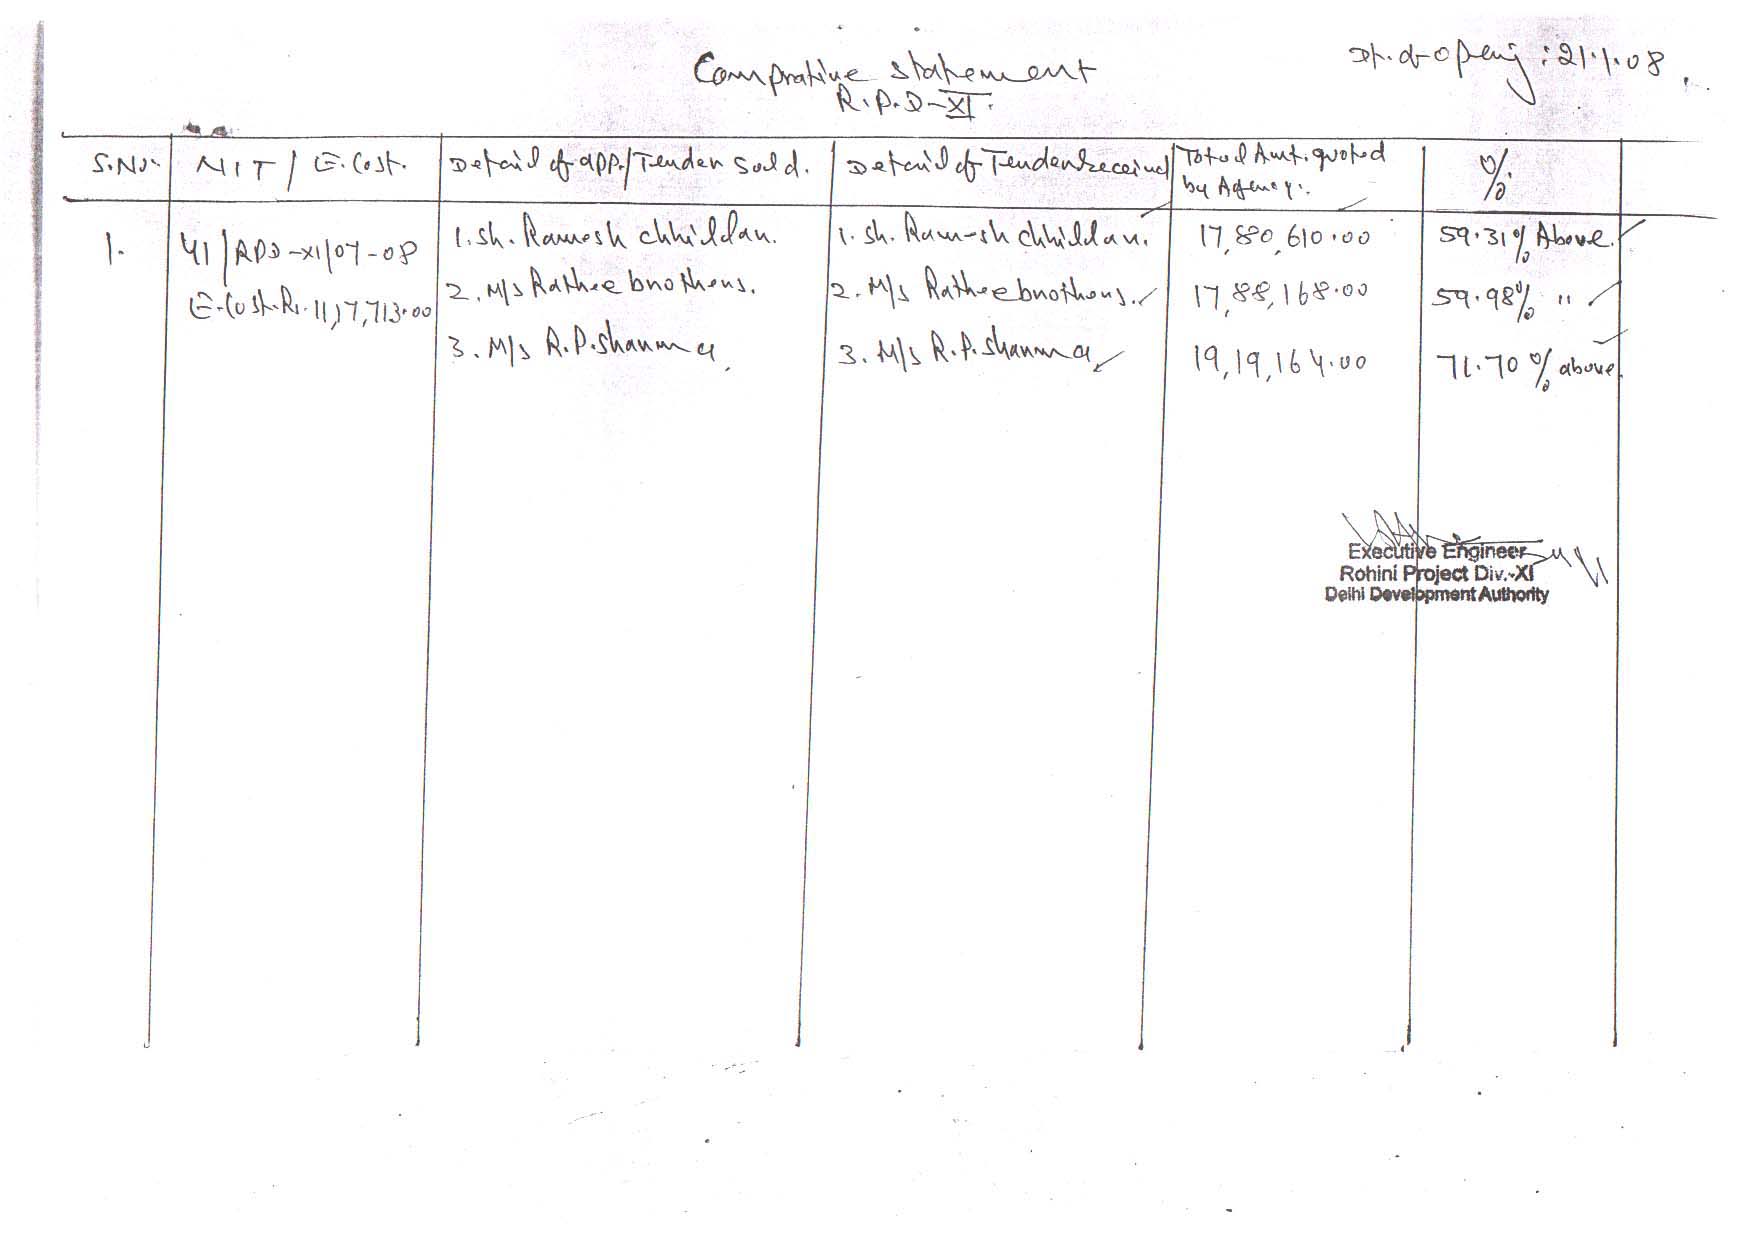 Comprative statement
R.P.D-XI.
Dt. of opening : 21.1.08
S.No. NIT / E.Cost. Detail of app./Tender sold. Detail of Tender received Total Amt. quoted by Agency. %
1. 41/RPD-XI/07-08 1. Sh. Ramesh chhillar. 1. Sh. Ramesh chhillar. 17,80,610.00 59.31% Above.
E.Cost. Rs. 11,17,713.00 2. M/s Rathee brothers. 2. M/s Rathee brothers. 17,88,168.00 59.98% "
3. M/s R.P. Sharma 3. M/s R.P. Sharma 19,19,164.00 71.70% above.
Executive Engineer
Rohini Project Div.-XI
Delhi Development Authority